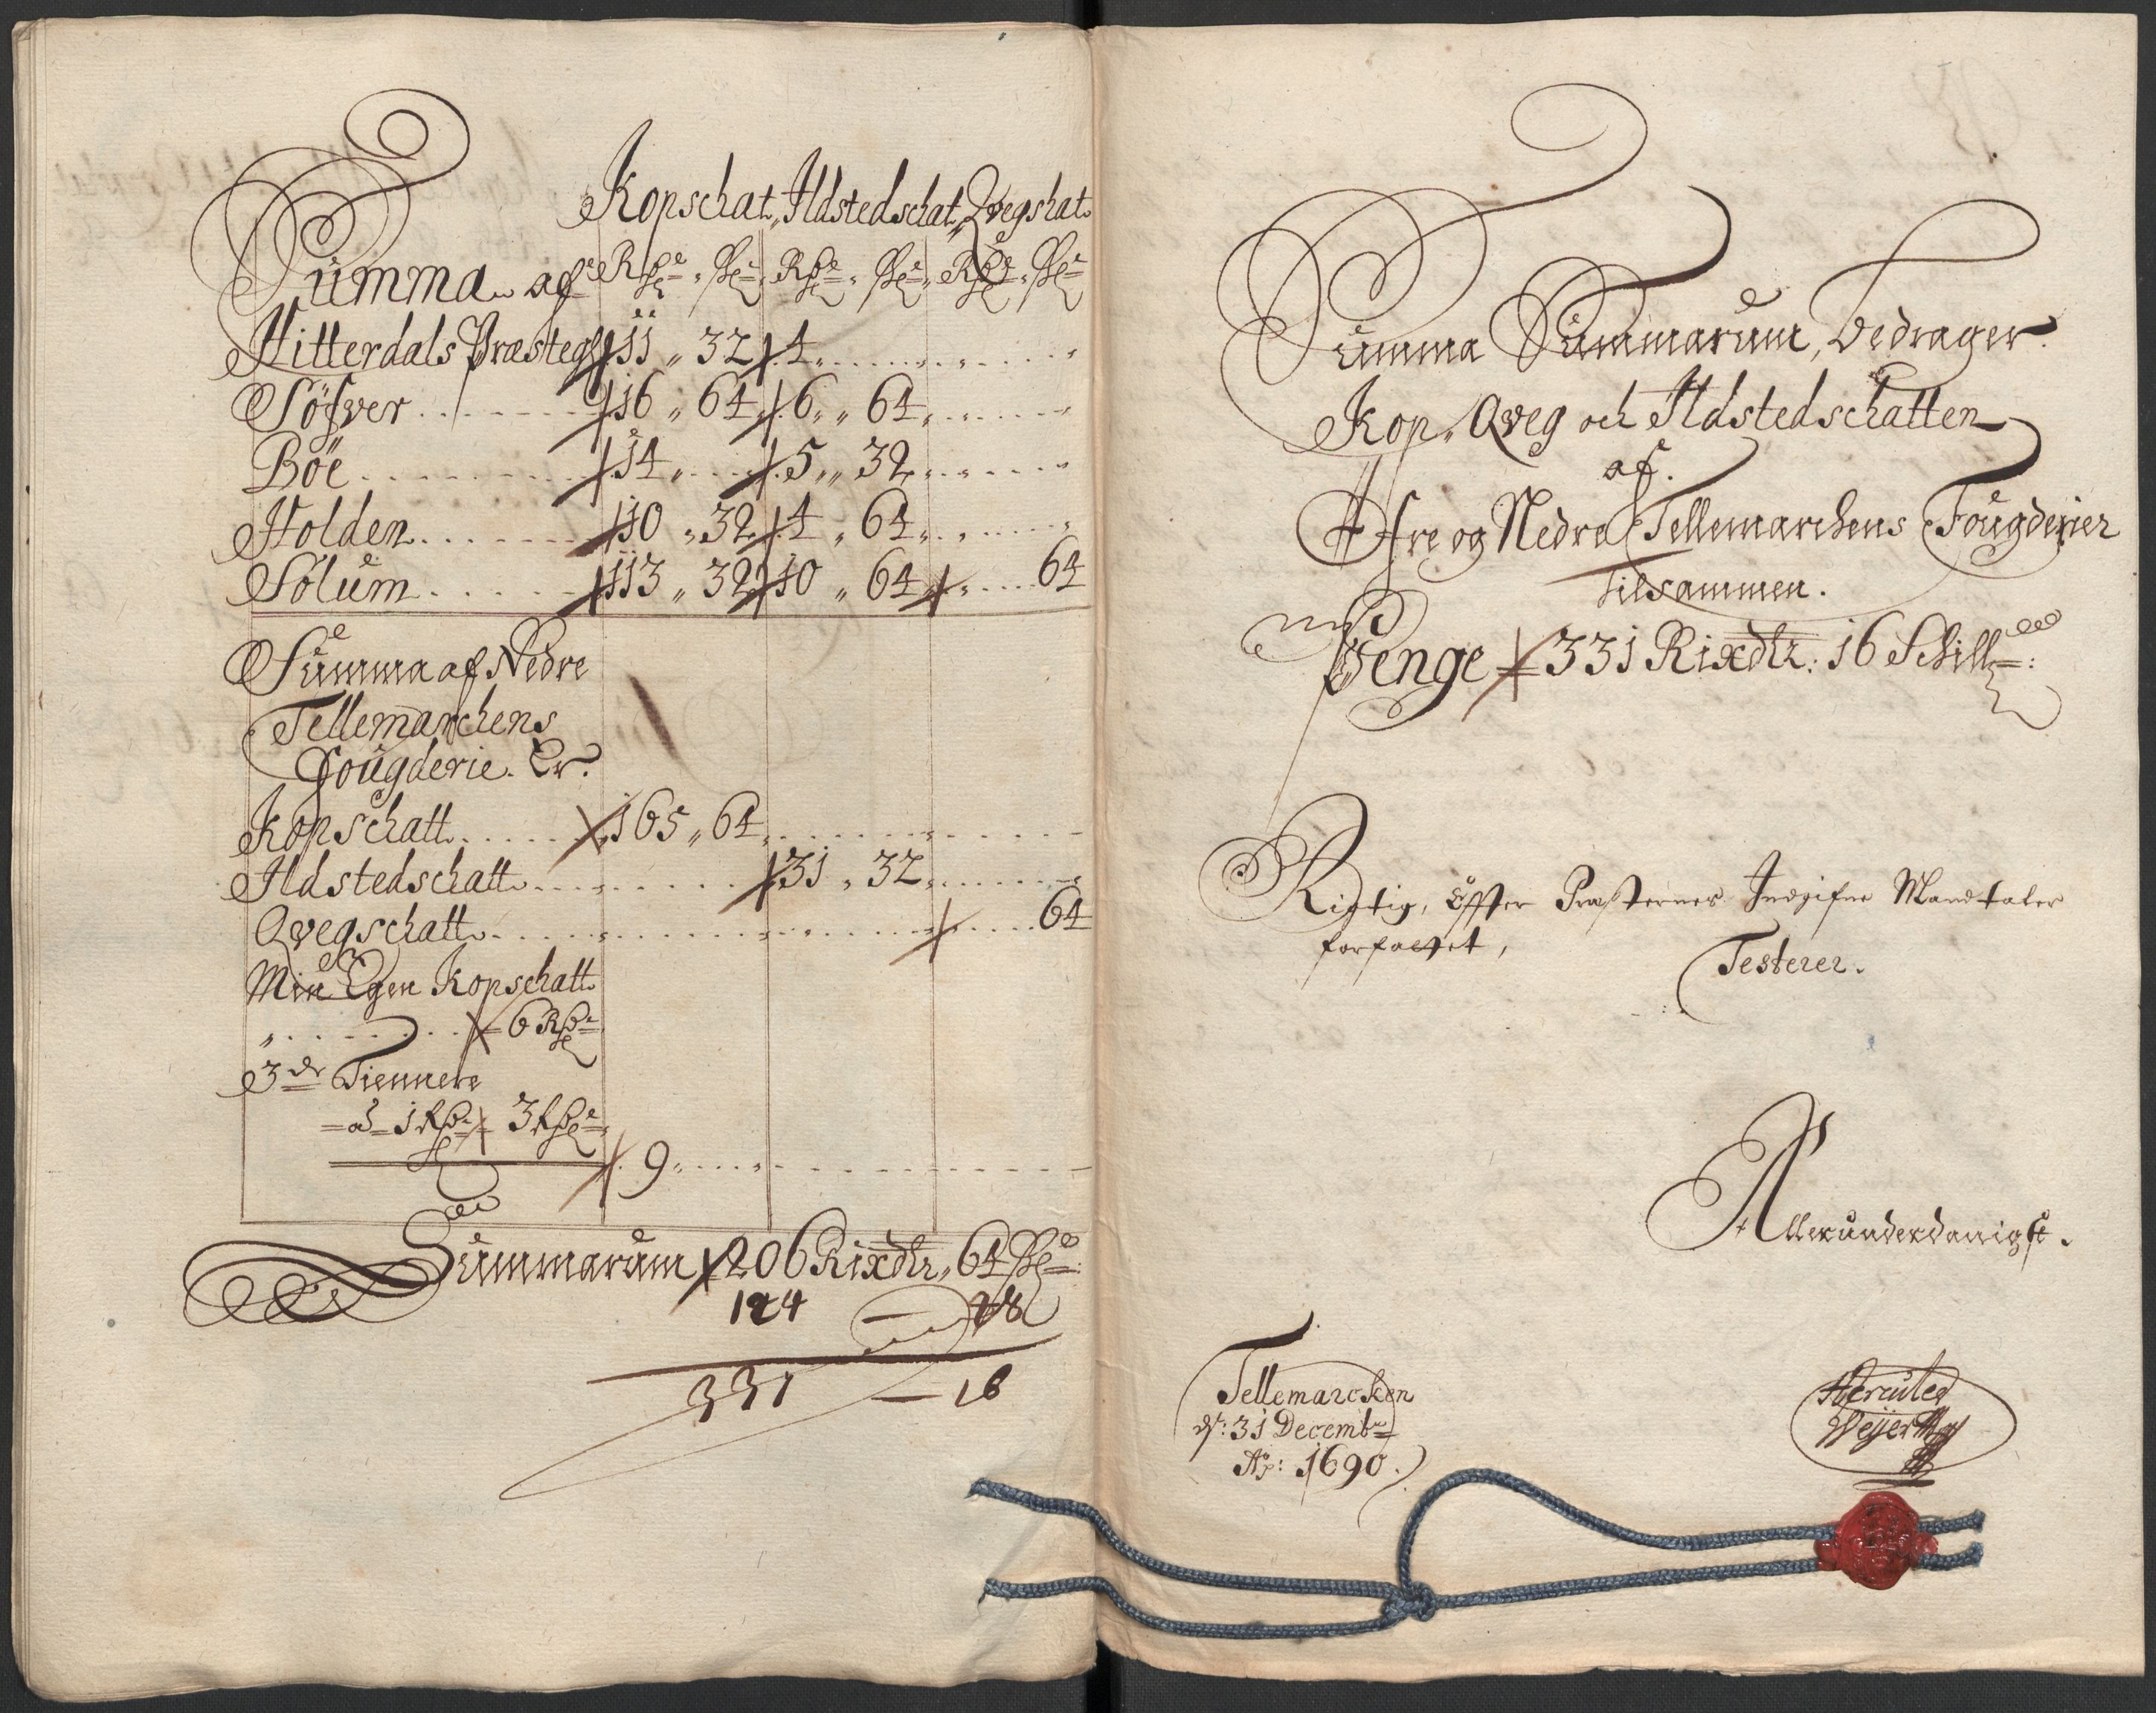 Kopschat, Ildstedschat, Qvegshat
Summa af Rdr ſſ Rdr ſſ Rdr ſſ
Hitterdals Præstegl 11 „ 32 4
Söfver 16 „ 64 6 „ 64
Böe 14 „ 5 „ 32
Holden 10 „ 32 4 „ 64
Solum 113 „ 32 10 „ 64 64
Summa af Nedre
Tellemarchens
Fougderie. Er.
Kopschatt 165 „ 64
Ildstedschatt 31 „ 32
Qvegschatt 64
Min Egen Kopschatt
6 Rdr
3de Tiennere
a 1 Rdr 3 Rdr
9
Summarum 206 Rixdlr „ 64 ſſ
124 — 48
331 — 16
Summa Summarum, bedrager
Kop, Qveg och Ildstedschatten
af
Öfre og Nedre Tellemarchens Fougderier
tilsammen.
Penge 331 Rixdlr: 16 Schill:
Rigtig, Effter Præsternes Indgifne Mandtaler
forfattet,
Testerer.
Allerunderdanigst.
Tellemarcken
d: 31 Decembr
Ao: 1690.
Hercules
Weyer